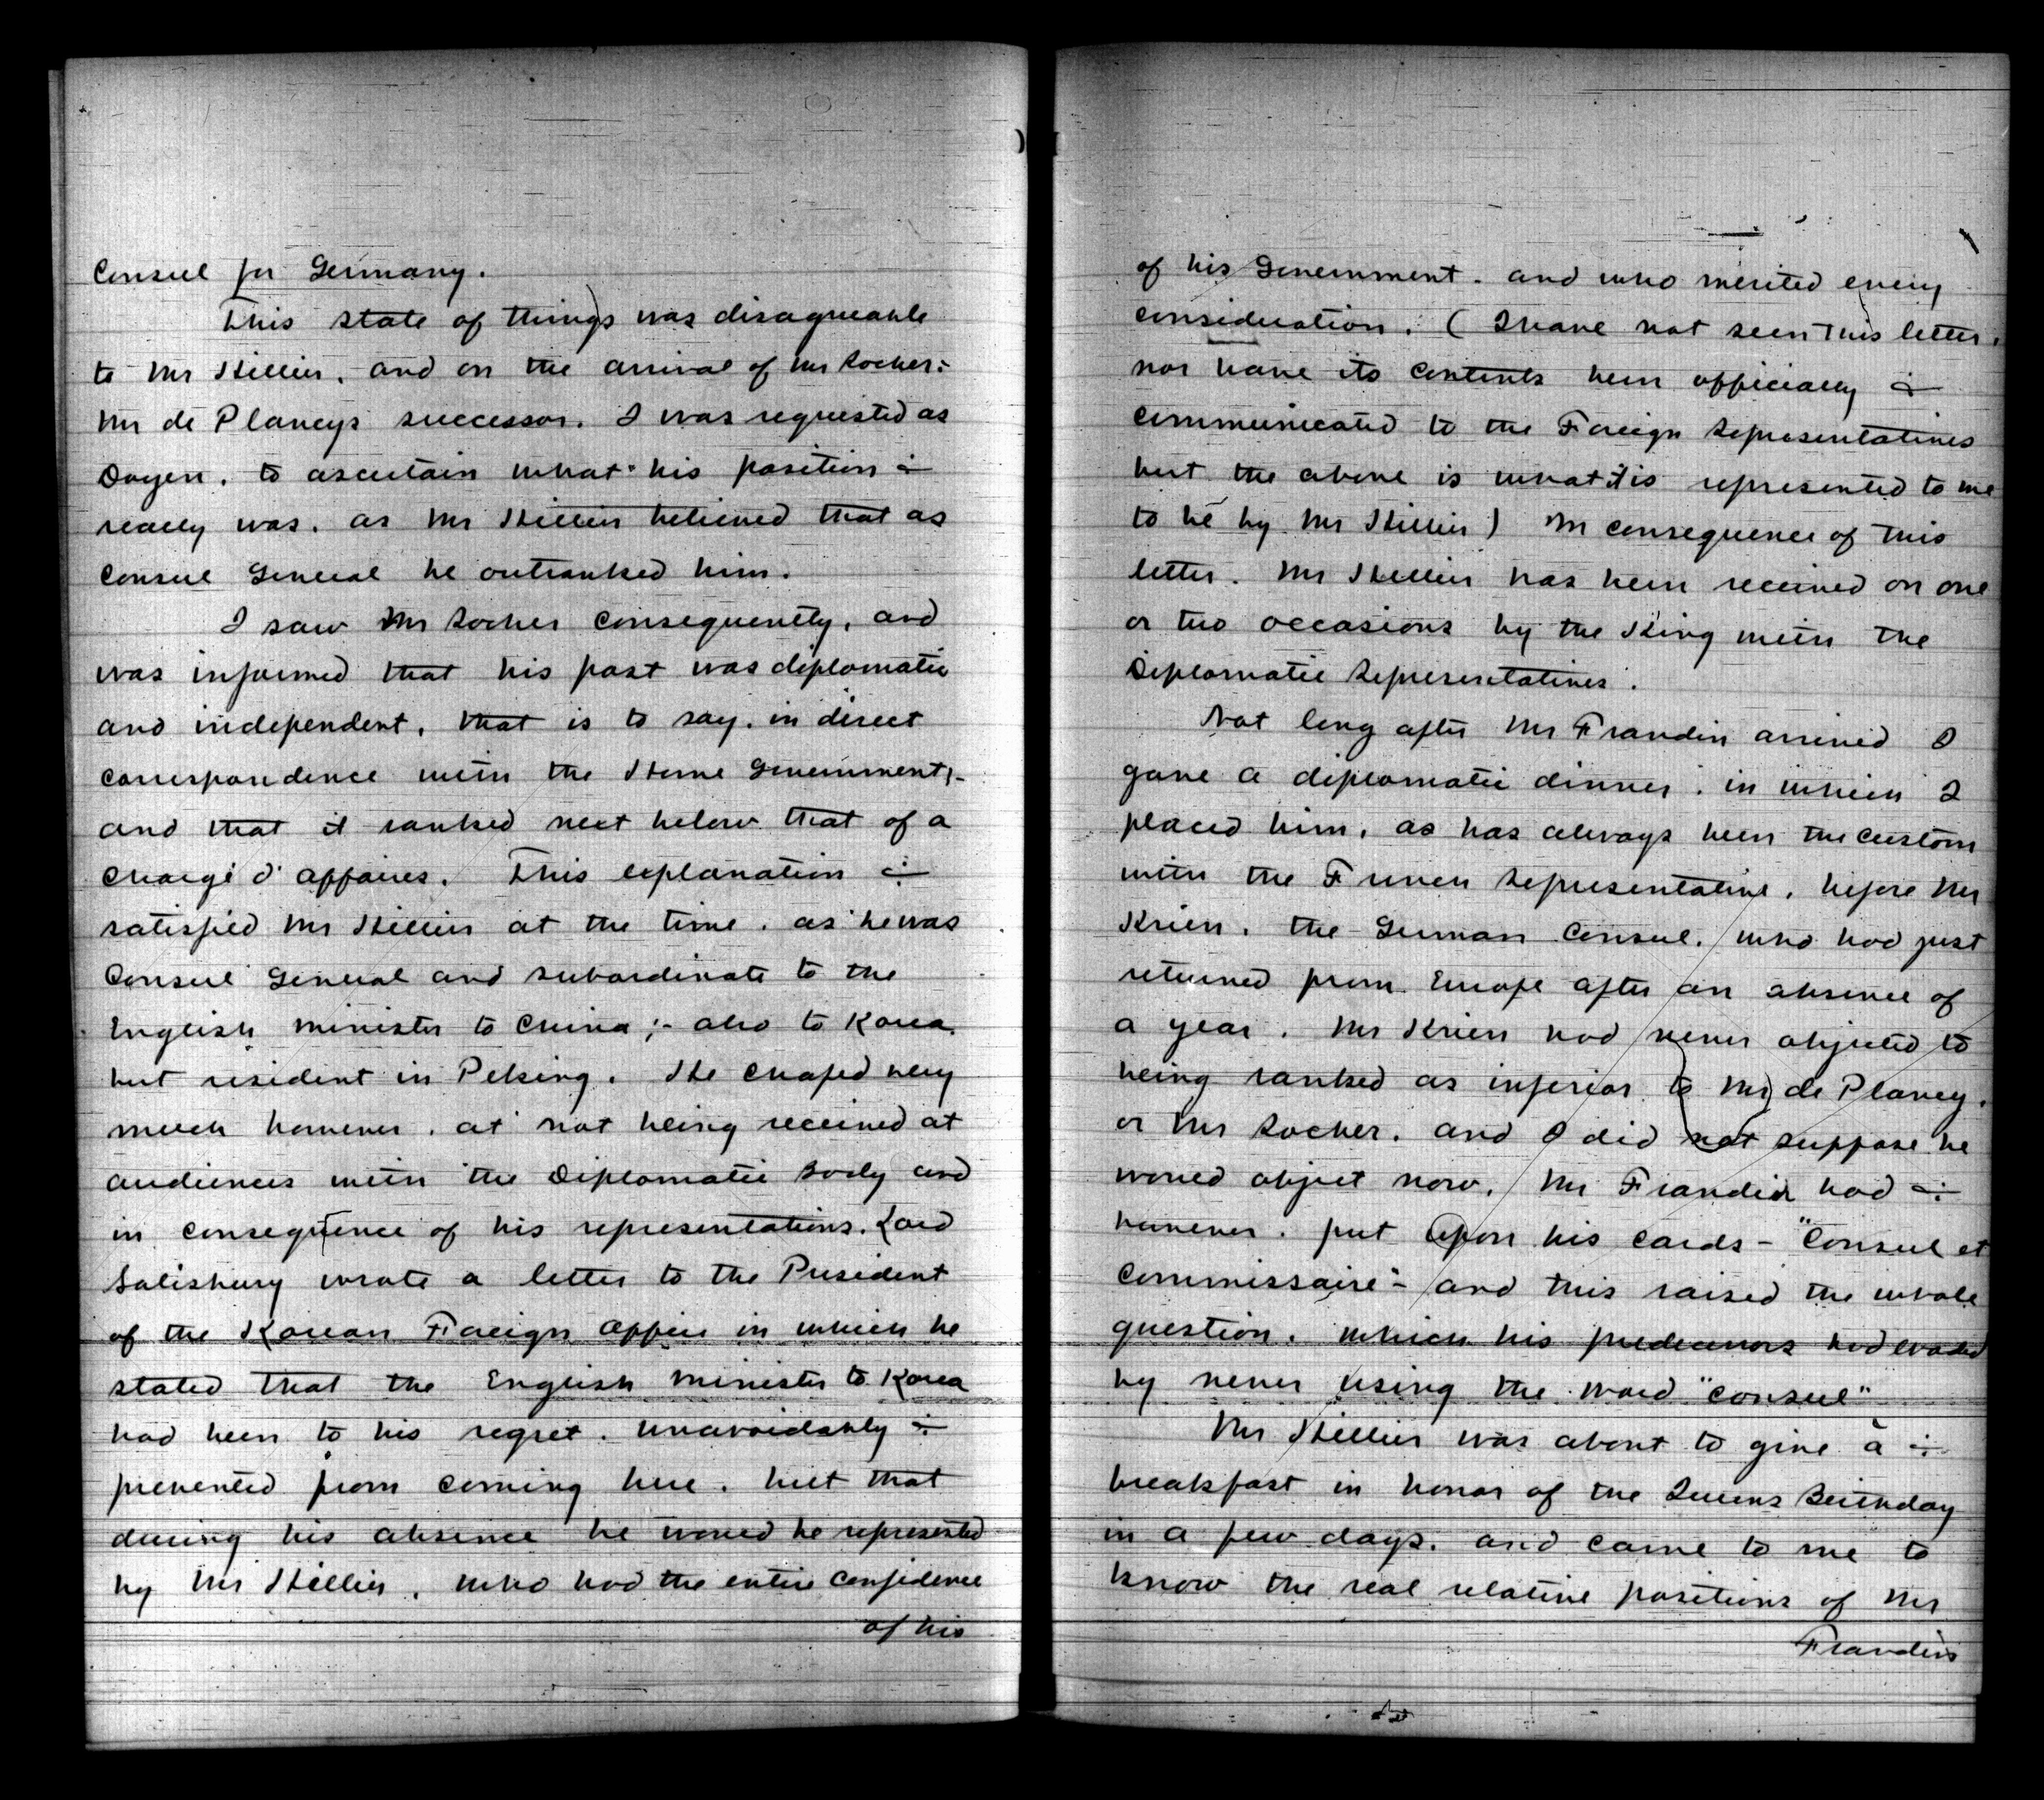 Consul for Germany.
This state of things was disagreeable
to Mr Hillier, and on the arrival of Mr Rocher:
Mr de Plancy's successor. I was requested as
Doyen, to ascertain what his position ÷
really was. as Mr Hillier believed that as
Consul General he outranked him.
I saw Mr Rocher consequently, and
was informed that his post was diplomatic
and independent, that is to say, in direct
correspondence with the Home Government;-
and that it ranked next below that of a
Chargé d'affaires. This explanation ÷
satisfied Mr Hillier at the time, as he was
Consul General and subordinate to the
English Minister to China;- also to Korea
but resident in Peking. He chafed very
much however, at not being received at
audiences with the Diplomatic Body and
in consequence of his representations, Lord
Salisbury wrote a letter to the President
of the Korean Foreign Office in which he
stated that the English Minister to Korea
had been to his regret, unavoidably ÷
prevented from coming here, but that
during his absence he would be represented
by Mr Hillier, who had the entire confidence
of his
of his Government. and who merited every
consideration. (I have not seen this letter,
nor have its contents been officially ÷
communicated to the Foreign Representatives
but the above is what it is represented to me
to be by Mr Hillier) In consequence of this
letter. Mr Hillier has been received on one
or two occasions by the King with the
Diplomatic Representatives.
Not long after Mr Frandin arrived I
gave a diplomatic dinner, in which I
placed him, as has always been the custom
with the French Representative, before Mr
Krien, the German Consul, who had just
returned from Europe after an absence of
a year. Mr Krien had never objected to
being ranked as inferior to Mr de Plancy,
or Mr Rocher, and I did not suppose he
would object now. Mr Frandin had ÷
however, put upon his cards - "Consul et
Commissaire" - and this raised the whole
question, which his predecessors had evaded
by never using the word "consul"
Mr Hillier was about to give a ÷
breakfast in honor of the Queens Birthday
in a few days, and came to me to
know the real relative positions of Mr
Frandin